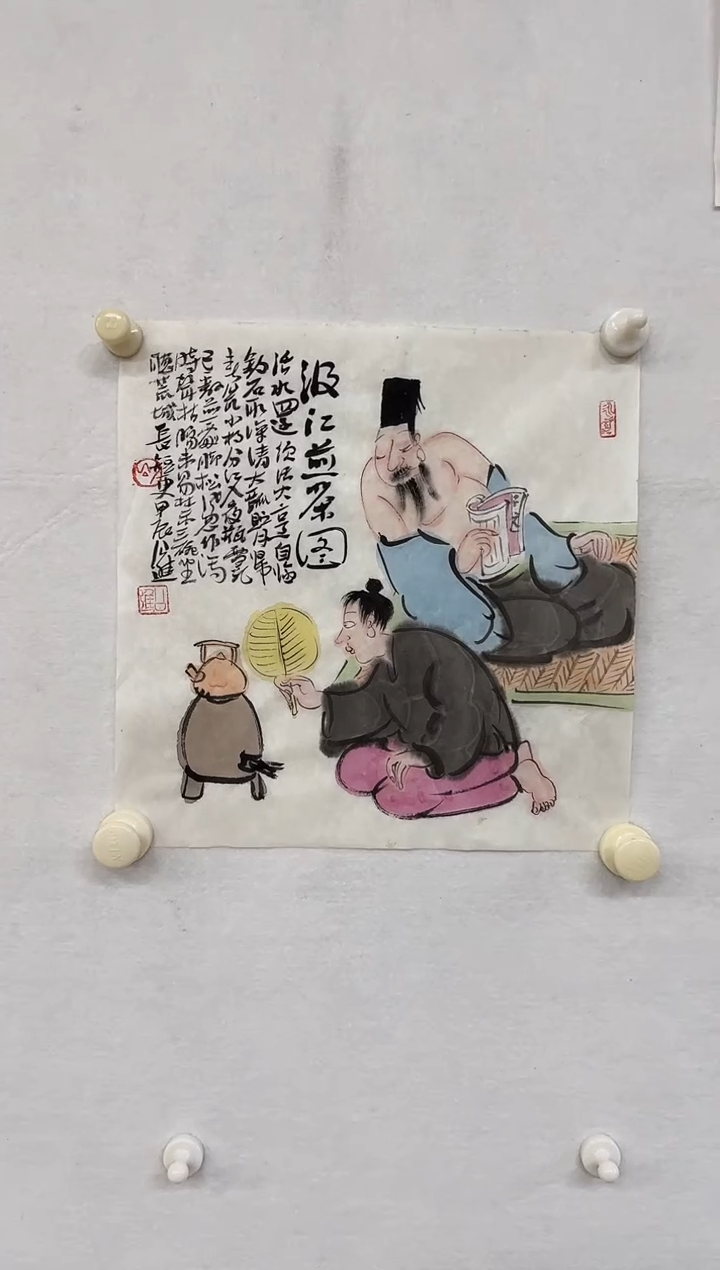 汲江煎茶图
活水還须活火烹自临
钓石取深清大瓢貯月歸
春瓮小杓分江入夜瓶雪乳
已翻煎處脚松風忽作瀉
時聲枯腸未易禁三碗坐
聽荒城長短更甲辰山進